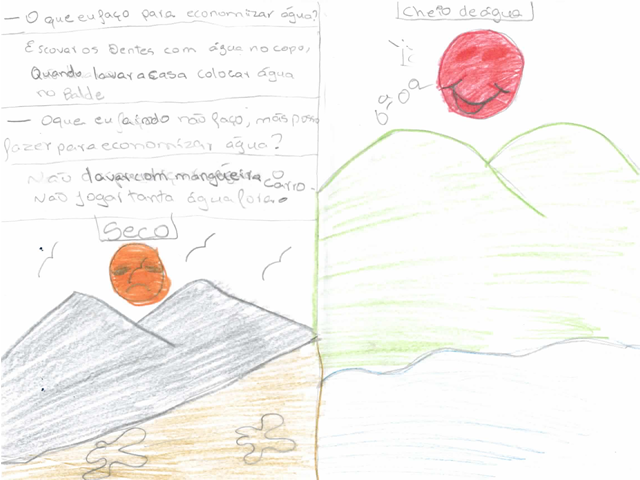 — O que eu faço para economizar água?
Escovar os Dentes com água no copo,
Quando lavar a casa colocar água
no balde
— O que eu ainda não faço, mas posso
fazer para economizar água?
Não lavar com mangueira o carro.
Não jogar tanta água fora.
Seco
Cheio de água